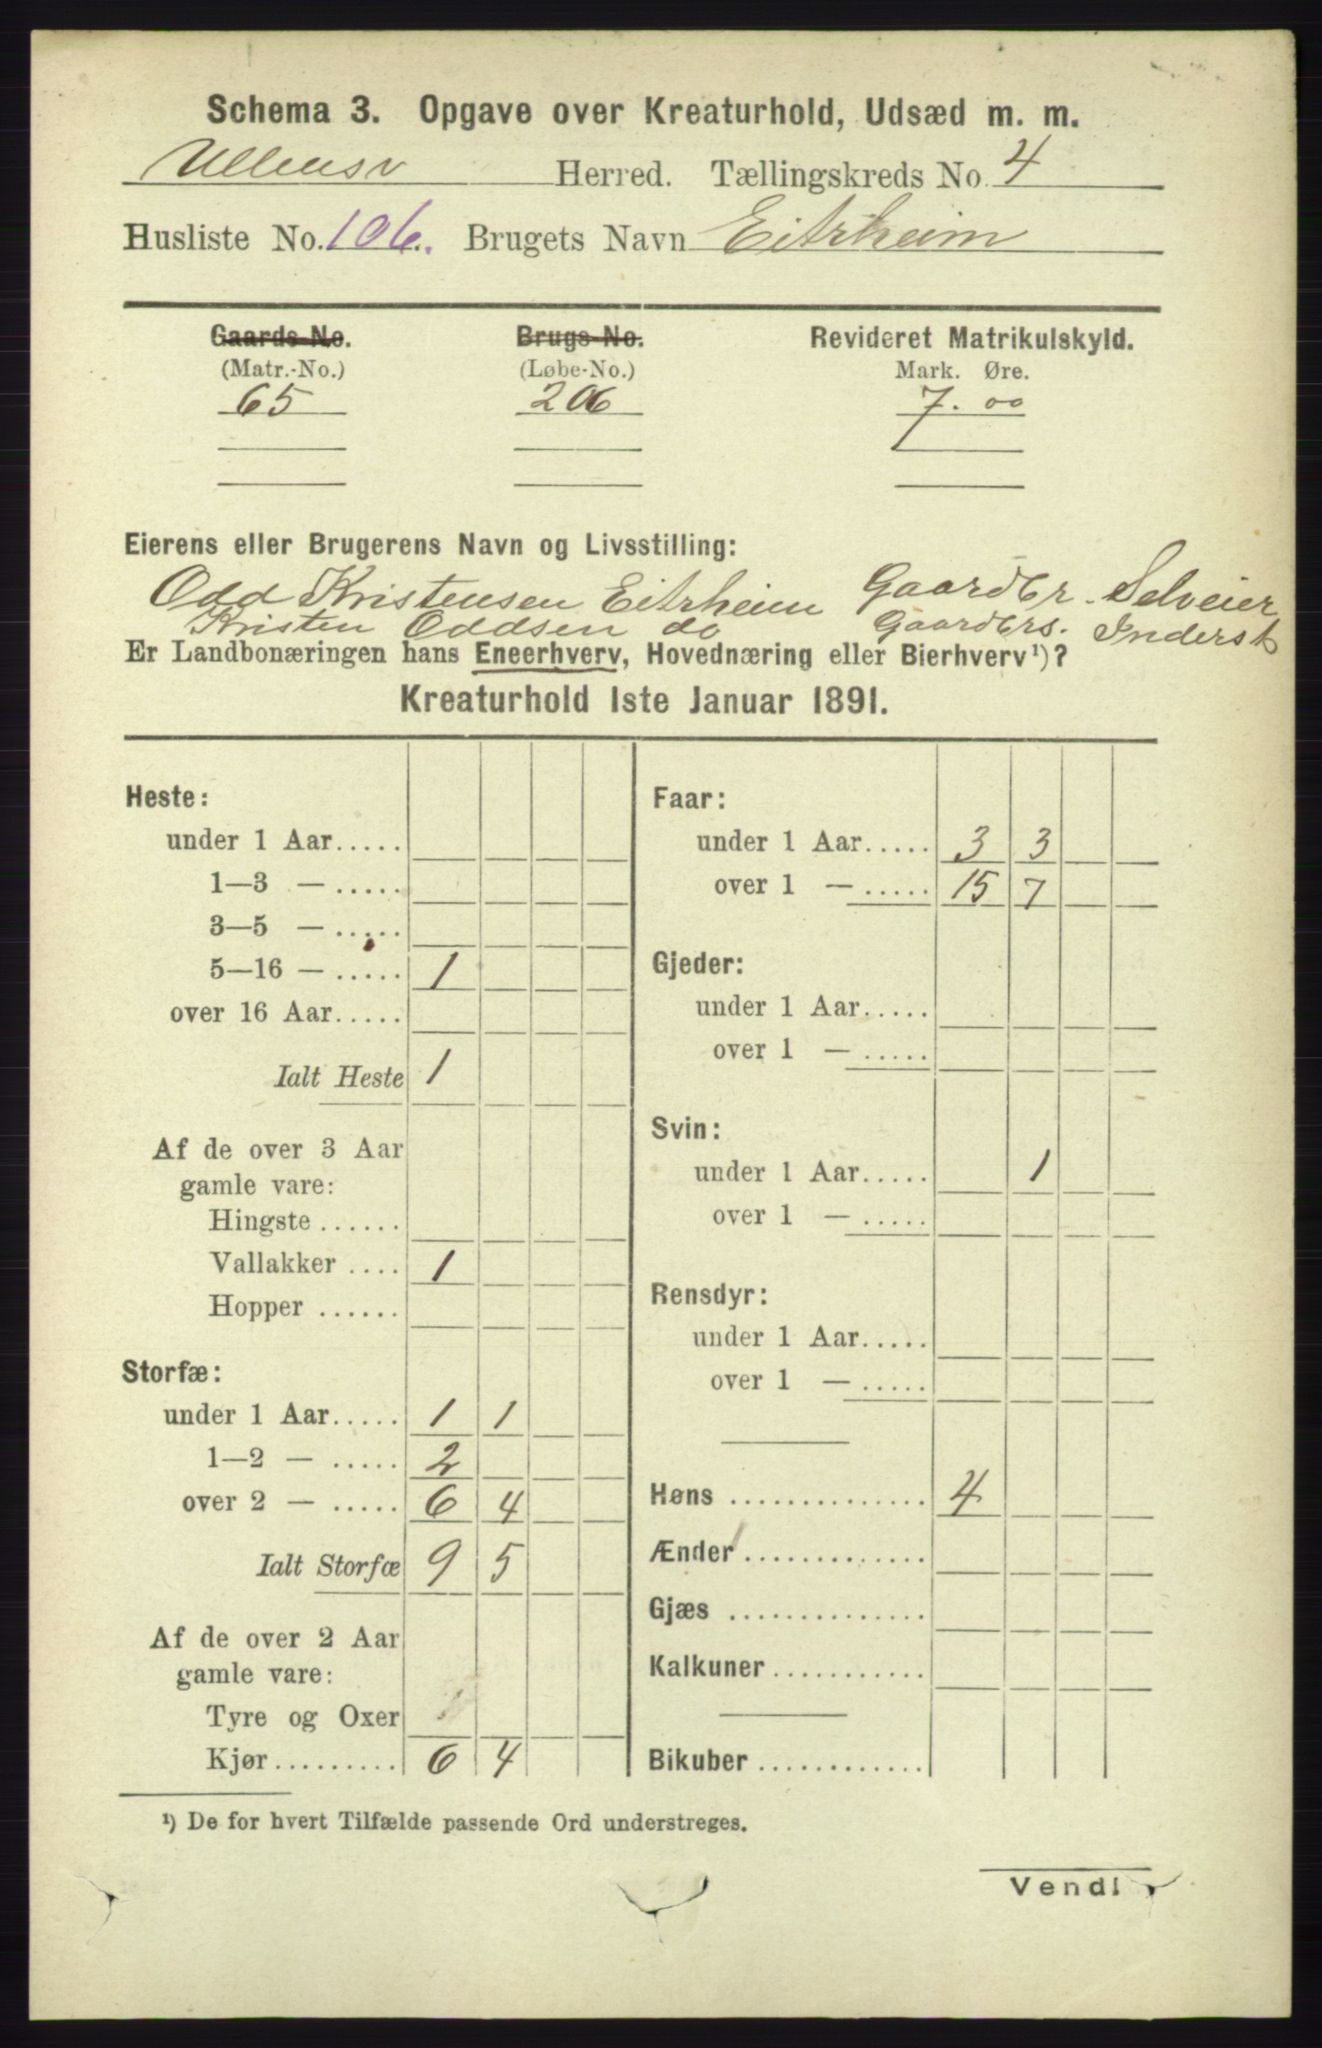 Schema 3. Opgave over Kreaturhold, Udsæd m. m.
Ullensv Herred. Tællingskreds No. 4
Husliste No. 106. Brugets Navn Eitrheim
Gaards-No. Brugs-No. Revideret Matrikulskyld.
(Matr.-No.) (Løbe-No.) Mark. Øre.
65 206 7. 00
Eierens eller Brugerens Navn og Livsstilling:
Odd Kristensen Eitrheim Gaardbr. Selveier
Kristen Oddsen do Gaardbrs. Inderst
Er Landbonæringen hans Eneerhverv, Hovednæring eller Bierhverv¹)?
Kreaturhold 1ste Januar 1891.
Heste:
under 1 Aar.....
1—3 — .....
3—5 — .....
5—16 — ..... 1
over 16 Aar.....
Ialt Heste 1
Af de over 3 Aar
gamle vare:
Hingste ......
Vallakker .... 1
Hopper ......
Storfæ:
under 1 Aar..... 1 1
1—2 — ..... 2
over 2 — ..... 6 4
Ialt Storfæ 9 5
Af de over 2 Aar
gamle vare:
Tyre og Oxer
Kjør.......... 6 4
Faar:
under 1 Aar..... 3 3
over 1 — ..... 15 7
Gjeder:
under 1 Aar.....
over 1 — .....
Svin:
under 1 Aar..... 1
over 1 — .....
Rensdyr:
under 1 Aar.....
over 1 — .....
Høns ............... 4
Ænder ..............
Gjæs ...............
Kalkuner............
Bikuber .............
¹) De for hvert Tilfælde passende Ord understreges.
Vend!